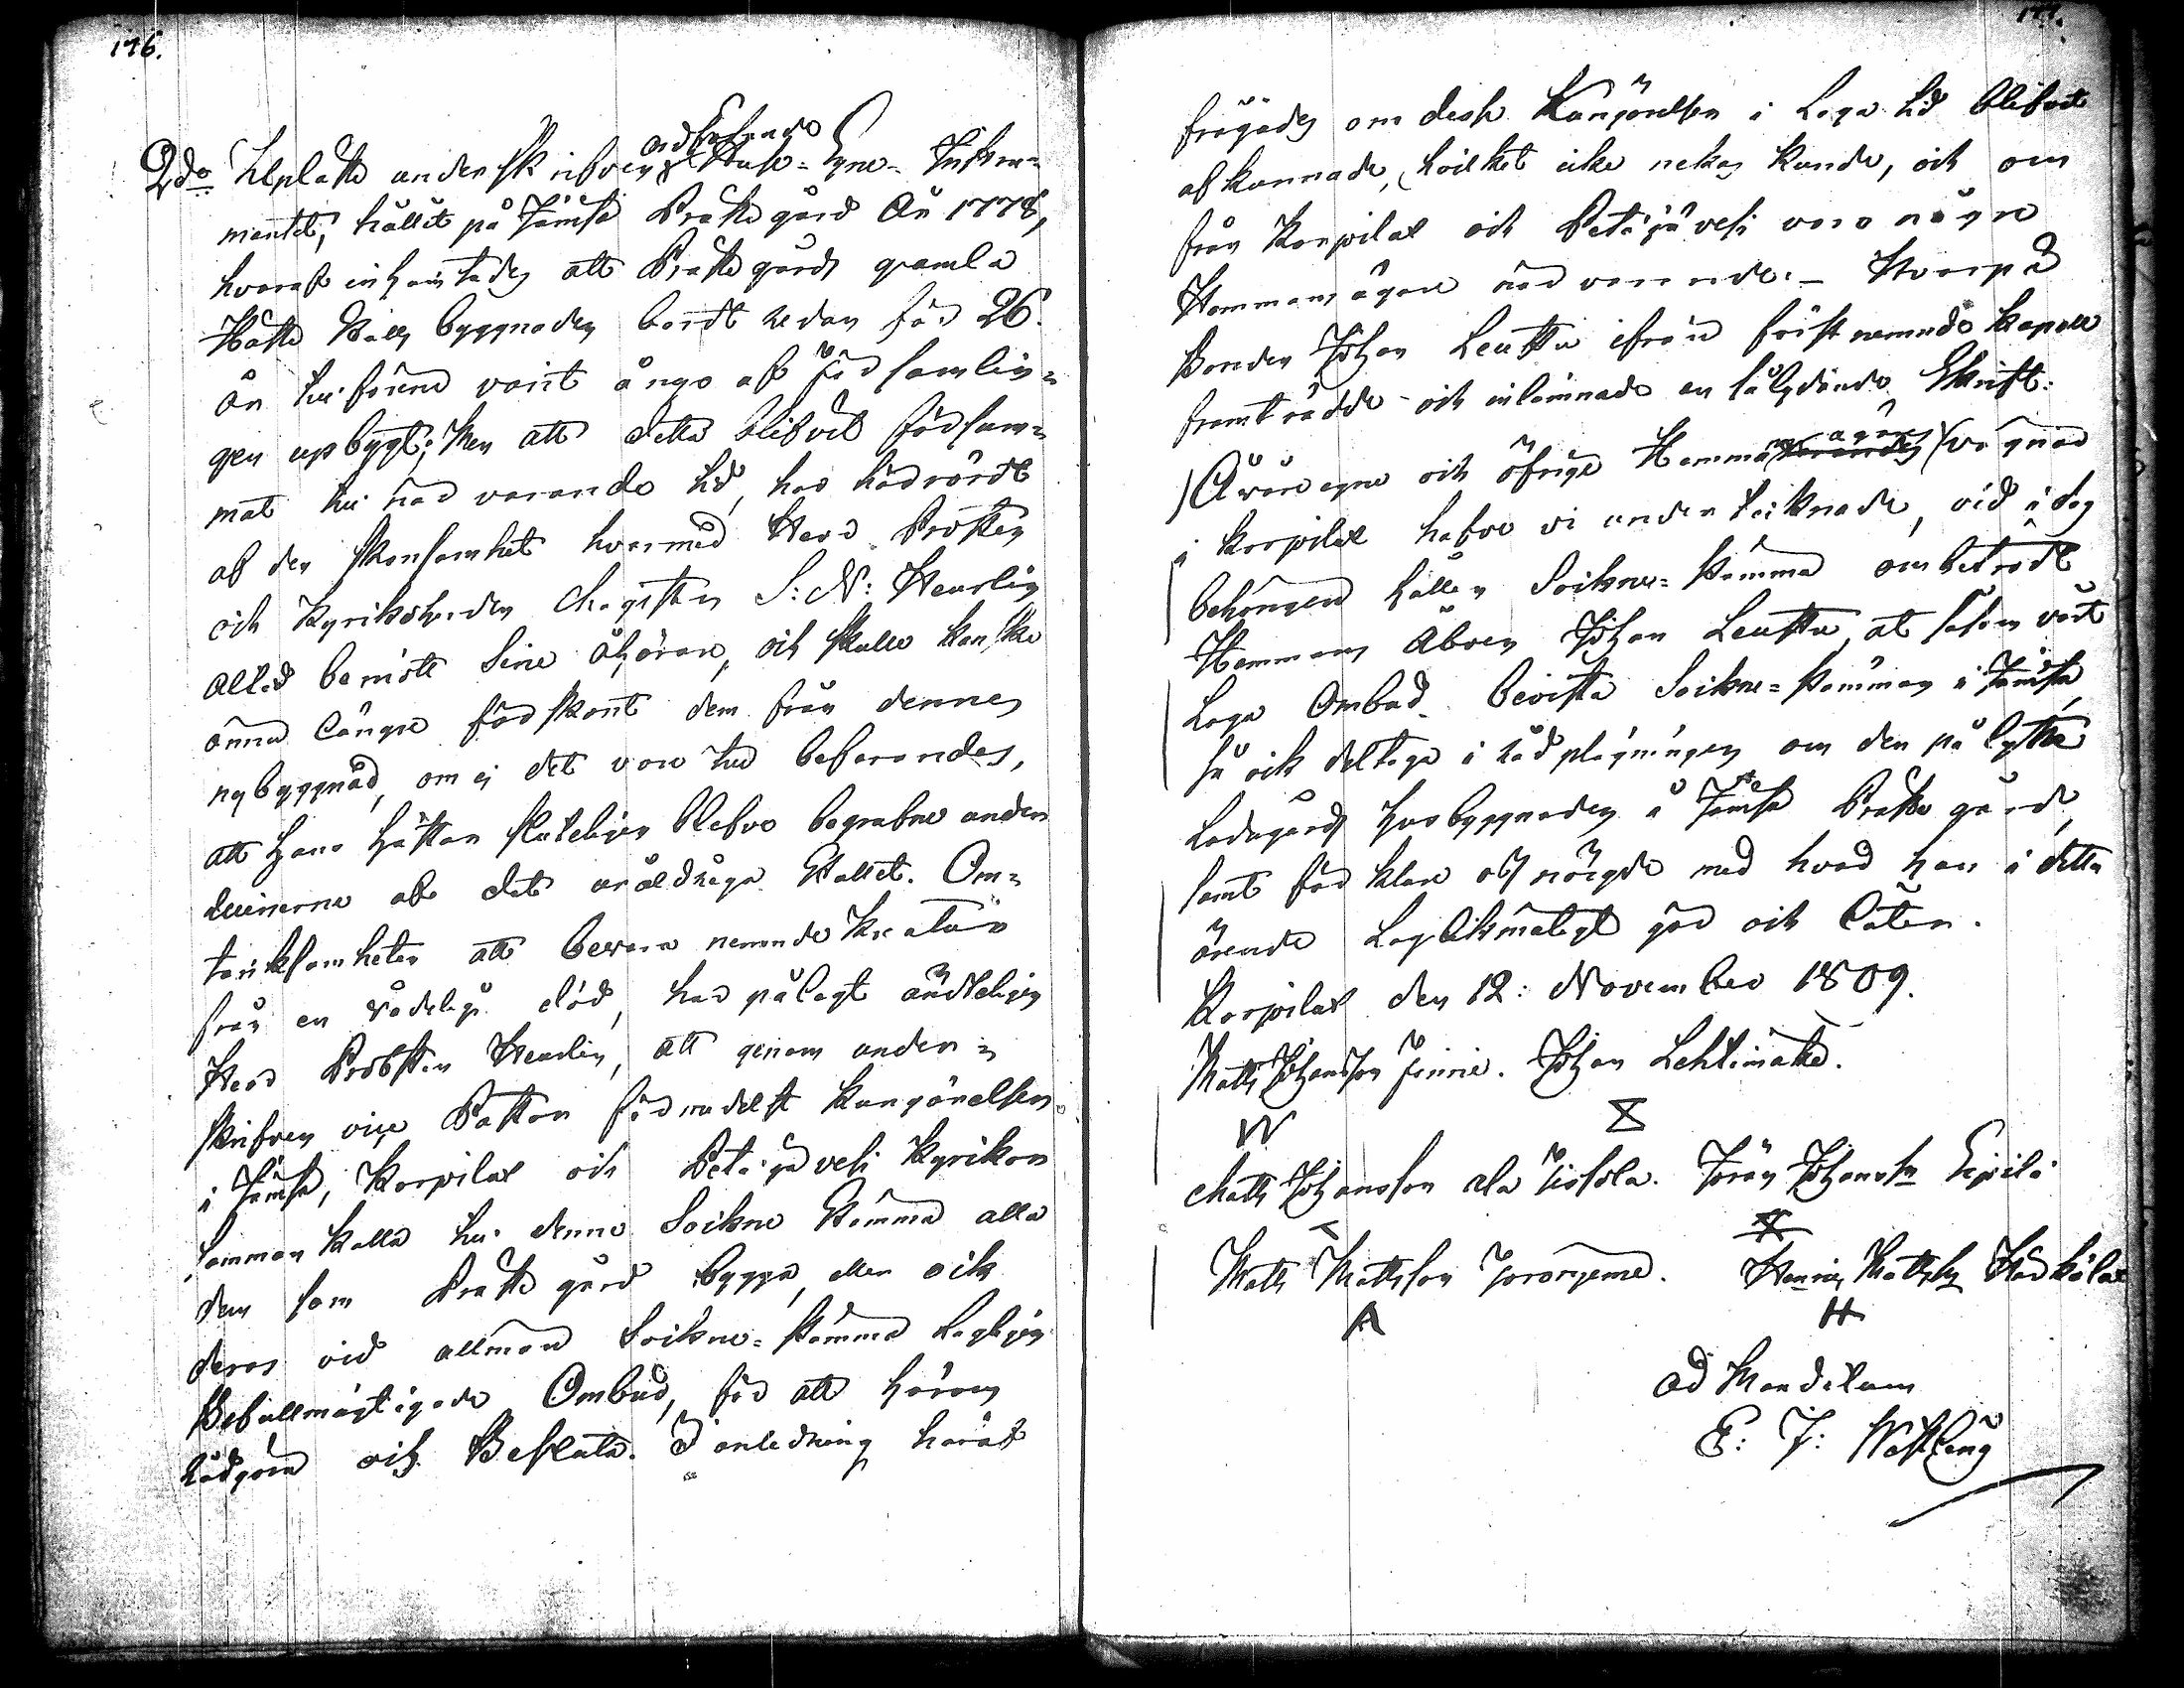 176.
adhibende
2do Uplaste underskrifven Huse-Syne-Instru-
mentet, hållit på Jämsä Prästegård År 1778,
hvaraf inhemtades att Prästegårds gamla
Fäste Stalls byggnaden bordt redan för 26.
År tillförene varit å nyo af Församlin-
gen upbygt; Men att detta blifvit försum-
mat till närvarande tid, har härrördt
af den skonsamhet hvarmed Herr Prosten
och Kyrkoherden Magister S: N: Heurlin
alltid bemött Sine åhörare, och skulle kanske
ännu längre förskont dem från denne
nybyggnad, om ej det vore till befarandes,
att hans hästar sluteligen blefvo begrafne under
ruinerne af det uråldriga Stallet. Om-
tänksamheten att bevara nemnde Kreatur
från en vådelig död, har pålagt ändteligen
Herr Probsten Heurlin, att genom under-
skrifven vice Pastor förmedelst Kungörelsen
i Jämsä, Korpilax och Petäjävesi Kyrkor
sammankalla till denne Sockne Stämma alla
dem som Prästegård bygga, eller ock
deras vid allmän Sockne-Stämma Lagligen
Befullmägtigade Ombud, för att härom
rådgöra och Besluta. I anledning häraf
177.
frågades om dess Kungörelsen i Laga tid blifvit
afkunnade, hvilket icke nekas kunde, och om
från Korpilax och Petäjävesi voro någre
Hemmansägare närvarande. - Hvarpå
Bonden Johan Leustu ifrån först nemnde Kapell
framträdde och inlämnade en sålydande Skrift:
Å våre egne och öfrige Hemmans ägares vägnar
i Korpilax hafve vi undertecknade, vid i dag
behörigen hållen Sockne-Stämma ombetrodt
Hemmans Åboen Johan Leustu, at såsom vårt
Laga Ombud bevista Sockne-Stämman i Jämsä,
så ock deltaga i rådplägningen om den på lystde
Ladugårds husbyggnaden å Jämsä Prästegård,
samt förklare oss nöigde med hvad han i detta
ärende Laglikmätigt gör och låter.
Korpilax den 12: November 1809.
Matts Johansson Jinnie. Johan Lehtimäki.
Matts Johansson ala Tissola. Jöran Johansson Eipilä
Matts Mattsson Joroinieme. Henric Mattsson Härkölax
A H
ad Mandatum
E: J: Westling